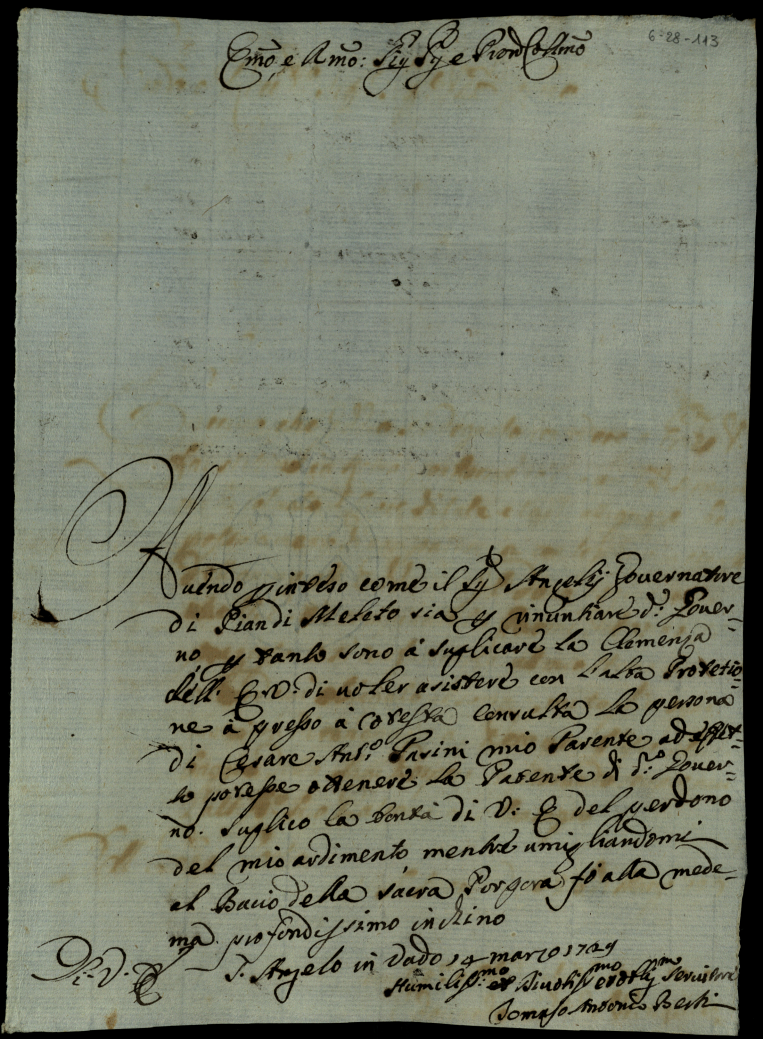 6-28-113
Emo, e Rmo: Sig Sig e Pron Colmo
Auendo inteso come il Sig Angelij Gouernatore
di Piandi Meleto sia p rinuntiare d.o Gouer=
no, p tanto sono à suplicare la Clemenza
dell' E. V. di uoler asistere con l'alta Protetio=
ne à presso à cotesta Consulta la persona
di Cesare Ant.o Pasini mio Parente ad effet=
to potesse ottenere la Patente di d.o Gouer=
no. suplico la bontà di V: E del perdono
del mio ardimento mentre umigliandomi
al Bacio della sacra Porpora fò alla mede=
ma profondissimo inchino
Di V. E
S. Angelo in Vado 14 marzo 1729
Humiliss.mo et Diuotiss.mo et Oblig.mo Seruitore
Tomaso Antonio